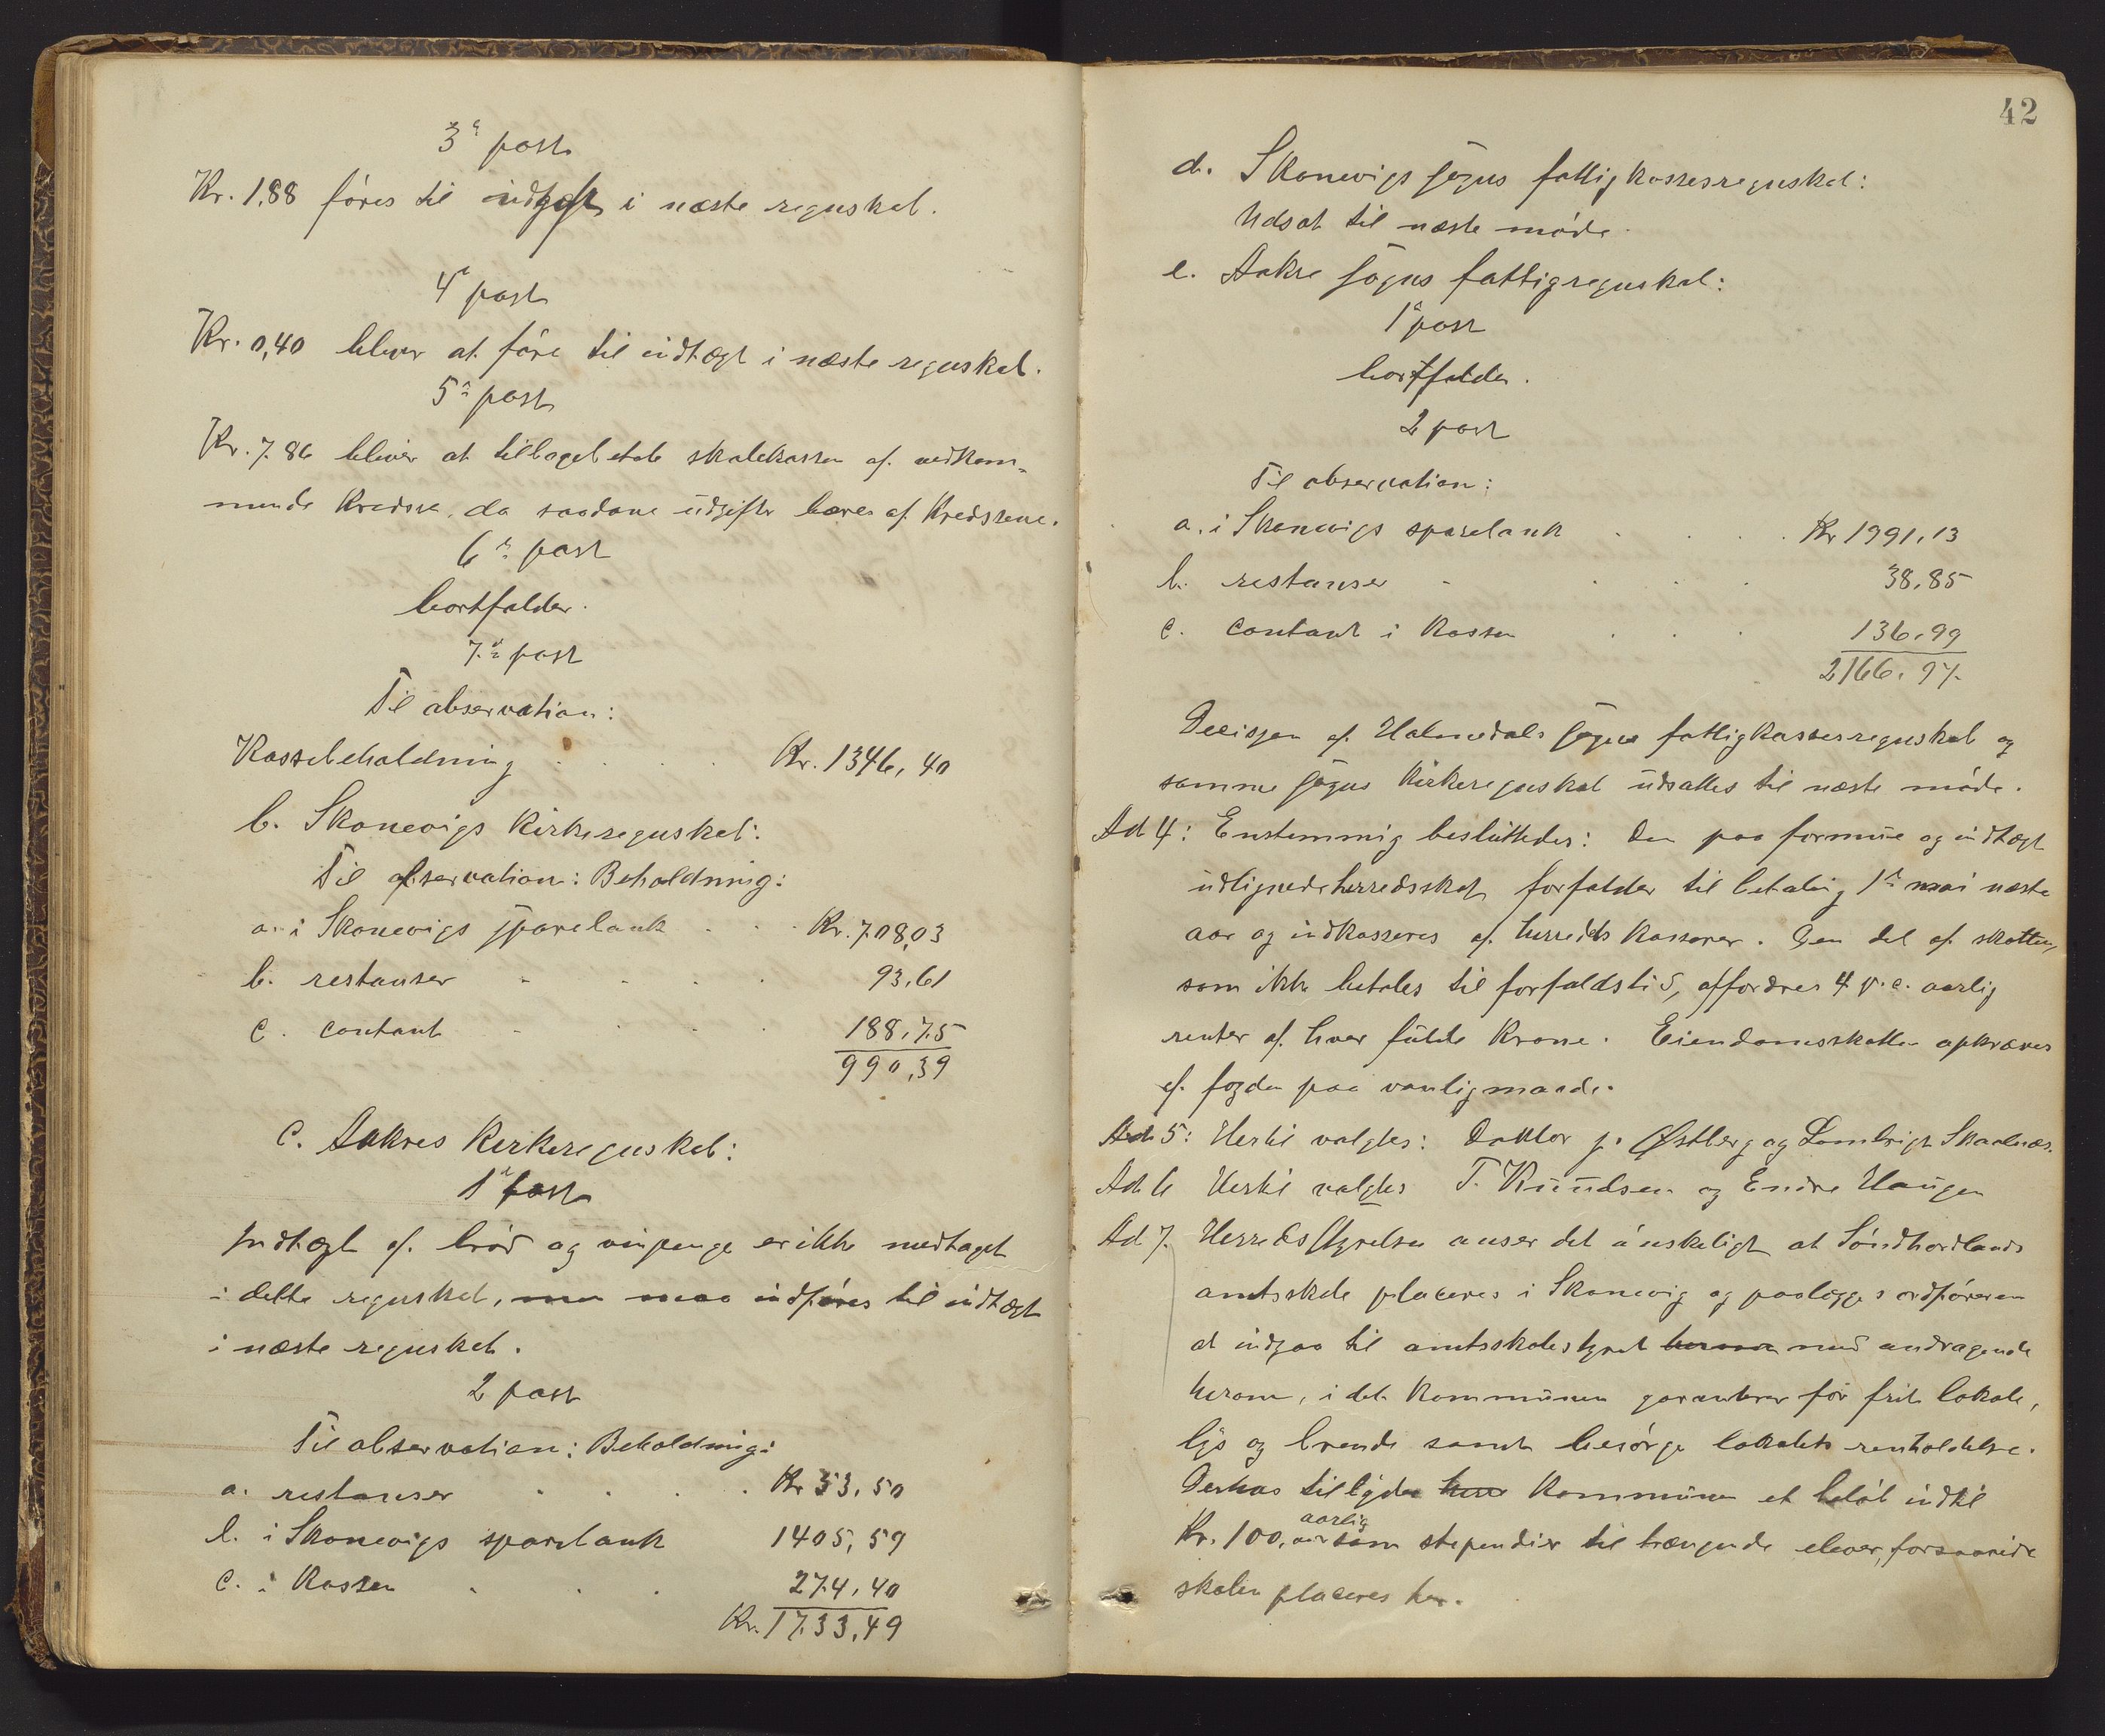 3ª post
Kr. 1,88 føres til indtægt i næste regnskab.
4ª post
Kr. 0,40 bliver at føre til indtægt i næste regnskab.
5ª post
Kr. 7.86 bliver at tilbagebetale skolekassen af vedkom-
mende kredse, da saadane udgifter bæres af kredsene.
6ª post
bortfalder.
7ª post
Til observation:
Kassebeholdning . . . . Kr. 1346,40
b. Skonevigs kirkeregnskab:
Til observation: Beholdning:
a. i Skonevigs sparebank . . Kr. 708,03
b. restanser . . . . 93,61
c. contant . . . . 188,75
990,39
c. Aakres kirkeregnskab:
1ª post
Indtægt af brød og vinpenge er ikke medtaget
i dette regnskab, men maa indføres til indtægt
i næste regnskab.
2 post
Til observation: Beholdning:
a. restanser . . . . Kr 53,50
b. i Skonevigs sparebank 1405,59
c. i kassen . . . 274,40
Kr. 1733,49
42
d. Skonevigs sogns fattigkassesregnskab:
Udsat til næste møde.
e. Aakre sogns fattigregnskab:
1ª post
bortfalder.
2 post
Til observation:
a. i Skonevigs sparebank . . . . Kr 1991,13
b. restanser . . . 38,85
c. contant i kassen . . . 136,99
2166,97
Decisjon af Holmedals sogns fattigkassesregnskab og
samme sogns kirkeregnskab udsattes til næste møde.
Ad 4: Enstemmig besluttedes: Den paa formue og indtægt
udlignede herredsskat forfalder til betaling 1ª mai næste
aar og indkasseres af herreds kasserer. Den del af skatten,
som ikke betales til forfaldstid, affordres 4 p.c. aarlig
renter af hver fulde krone. Eiendomsskatten opkræves
af fogden paa vanlig maade.
Ad 5: Hertil valgtes: Doktor J. Østberg og Lambrigt Skaalnes.
Ad 6 Hertil valgtes T. Knudsen og Endre Haugen
Ad 7. Herredsstyrelsen anser det ønskeligt at Søndhordlands
amtsskole placeres i Skonevig og paalægges ordføreren
at indgaa til amtsskolestyret med andragende
herom, idet kommunen garanterer for frit lokale,
lys og brende samt besørge lokalets renholdelse.
Derhos tilbyder kommunen et beløb indtil
Kr. 100, aarlig som stipendier til trængende elever, forsaavidt
skolen placeres her.